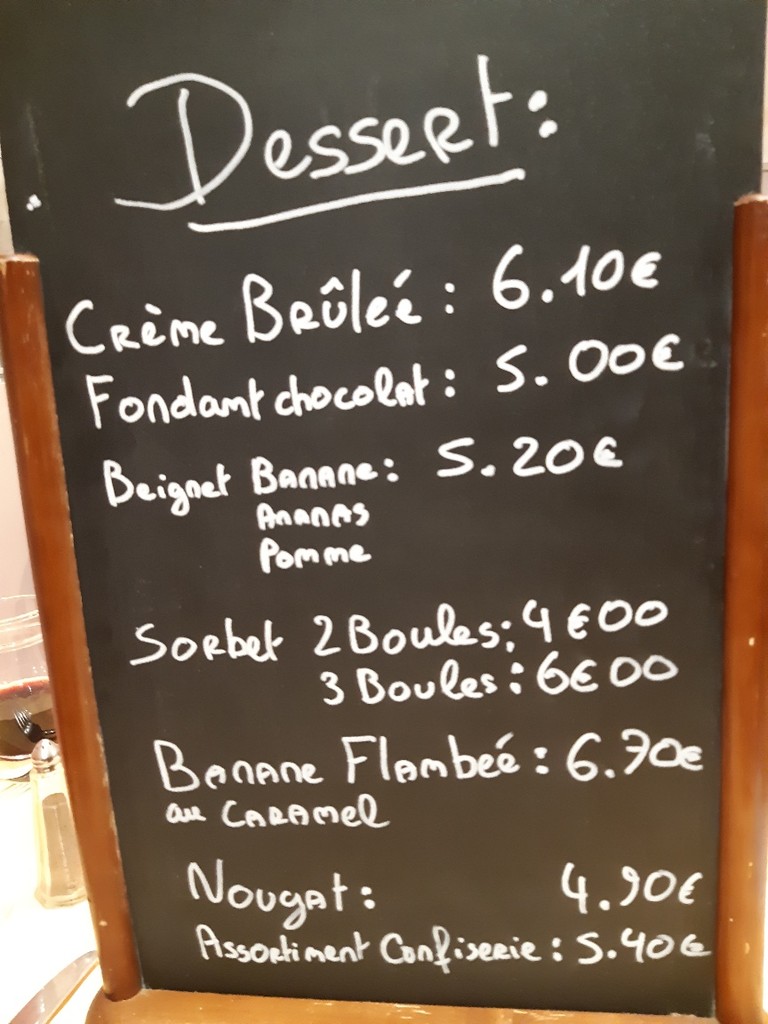 Dessert :
Crème Brûleé : 6.10€
Fondant chocolat : 5.00€
Beignet Banane : 5.20€
Ananas
Pomme
Sorbet 2 Boules : 4€00
3 Boules : 6€00
Banane Flambeé : 6.70€
au Caramel
Nougat : 4.90€
Assortiment Confiserie : 5.40€